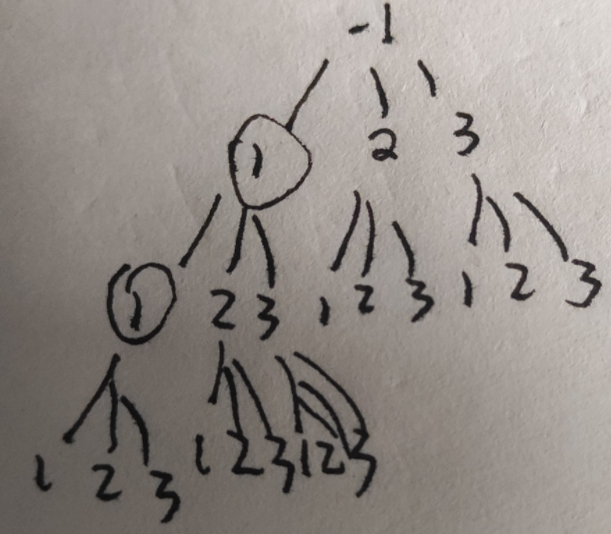 -1
1 2 3
1 2 3 1 2 3 1 2 3
1 2 3 1 2 3 1 2 3